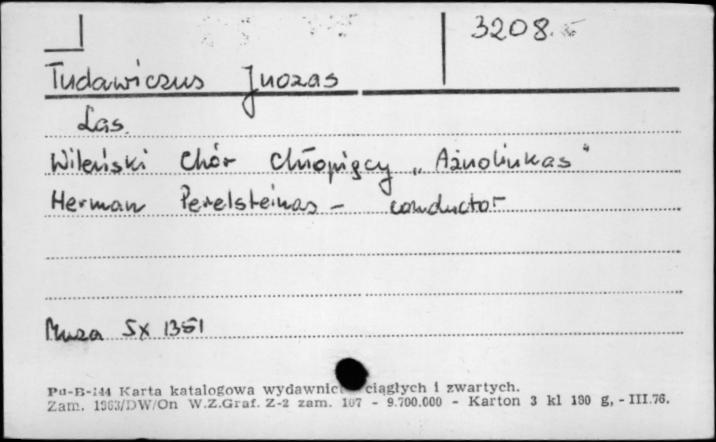 3208.
Tudawiczus Juozas
Las.
Wileński Chór Chłopięcy „Ažuolinkas"
Herman Perelsteinas - conductor
Muza SX 1351
Pu-B-144 Karta katalogowa wydawnict ciągłych i zwartych.
Zam. 1963/DW/On W.Z.Graf. Z-2 zam. 107 - 9.700.000 - Karton 3 kl 190 g, - III.76.